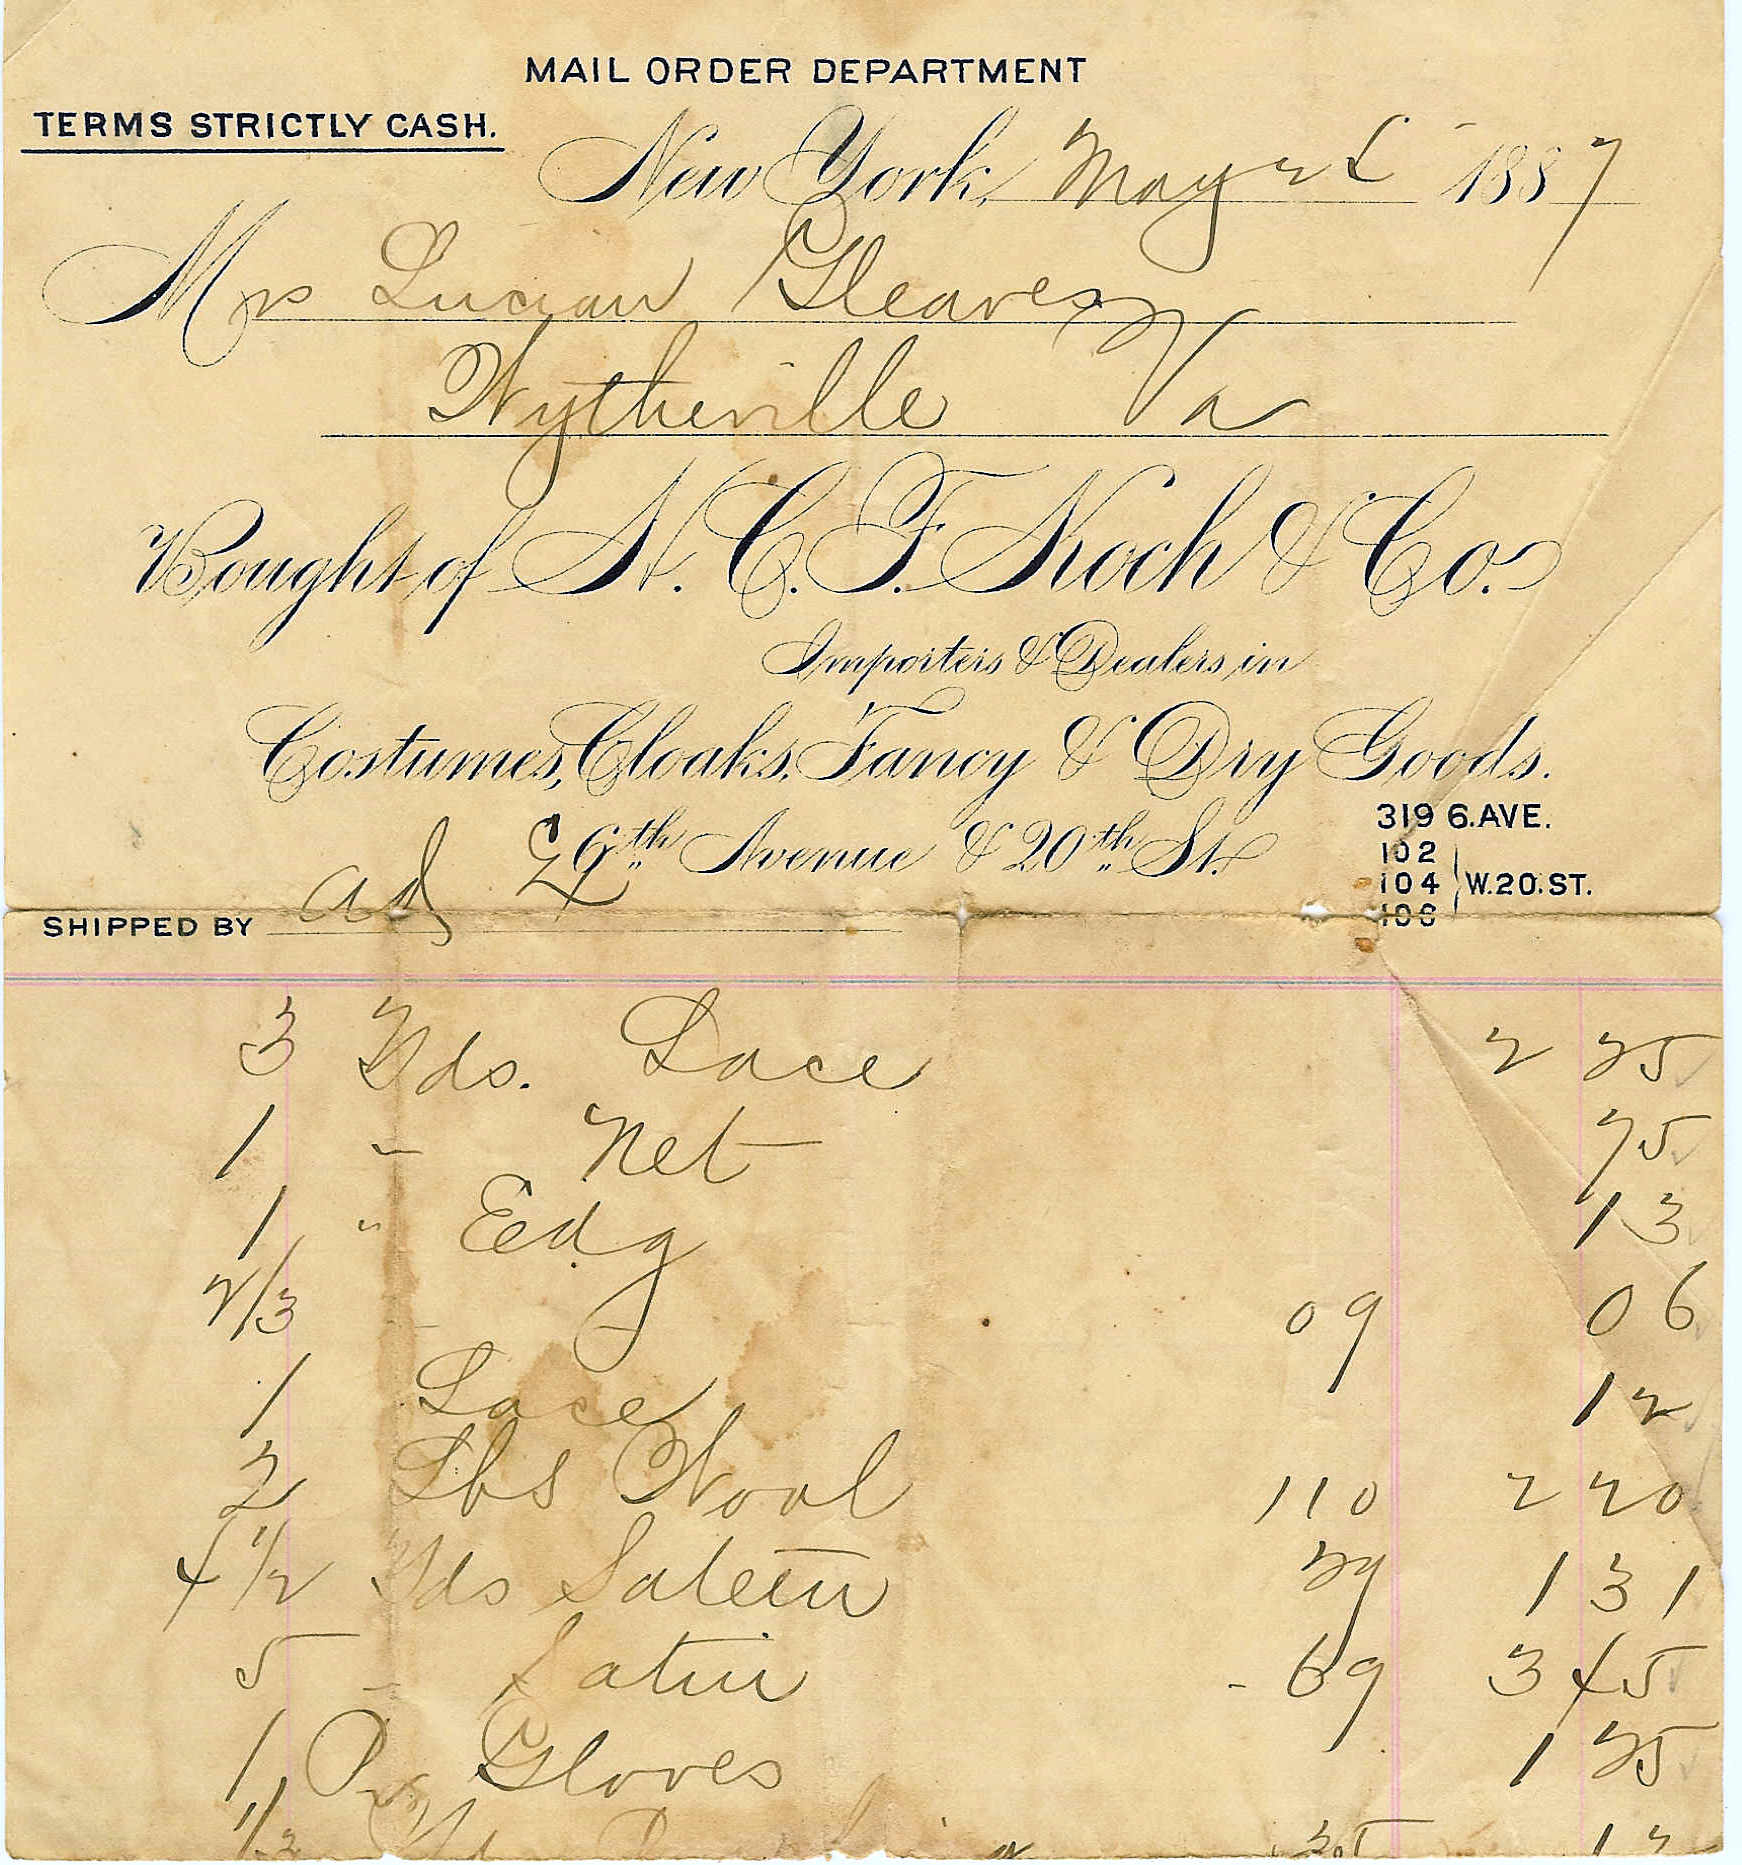 MAIL ORDER DEPARTMENT
TERMS STRICTLY CASH.
New York, May 1887
Mrs Lucian Gleaves
Wytheville Va
Bought of H. C. F. Koch & Co.
Importers & Dealers in
Costumes, Cloaks, Fancy & Dry Goods.
6th Avenue & 20th St.
319 6. AVE.
102
104 W. 20. ST.
106
SHIPPED BY
3 Yds. Lace 2 25
1 " Net 75
1 " Edg 13
2/3 " " 09 06
1 Lace 12
2 Lbs Wool 110 2 20
4 1/2 Yds Sateen 29 1 31
5 " Satin - 69 3 45
1 Pr Gloves 1 25
1/3 Yd 35 12